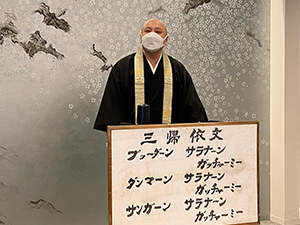 三帰依文
ブッダーン サラナーン
ガッチャーミー
ダンマーン サラナーン
ガッチャーミー
サンガーン サラナーン
ガッチャーミー